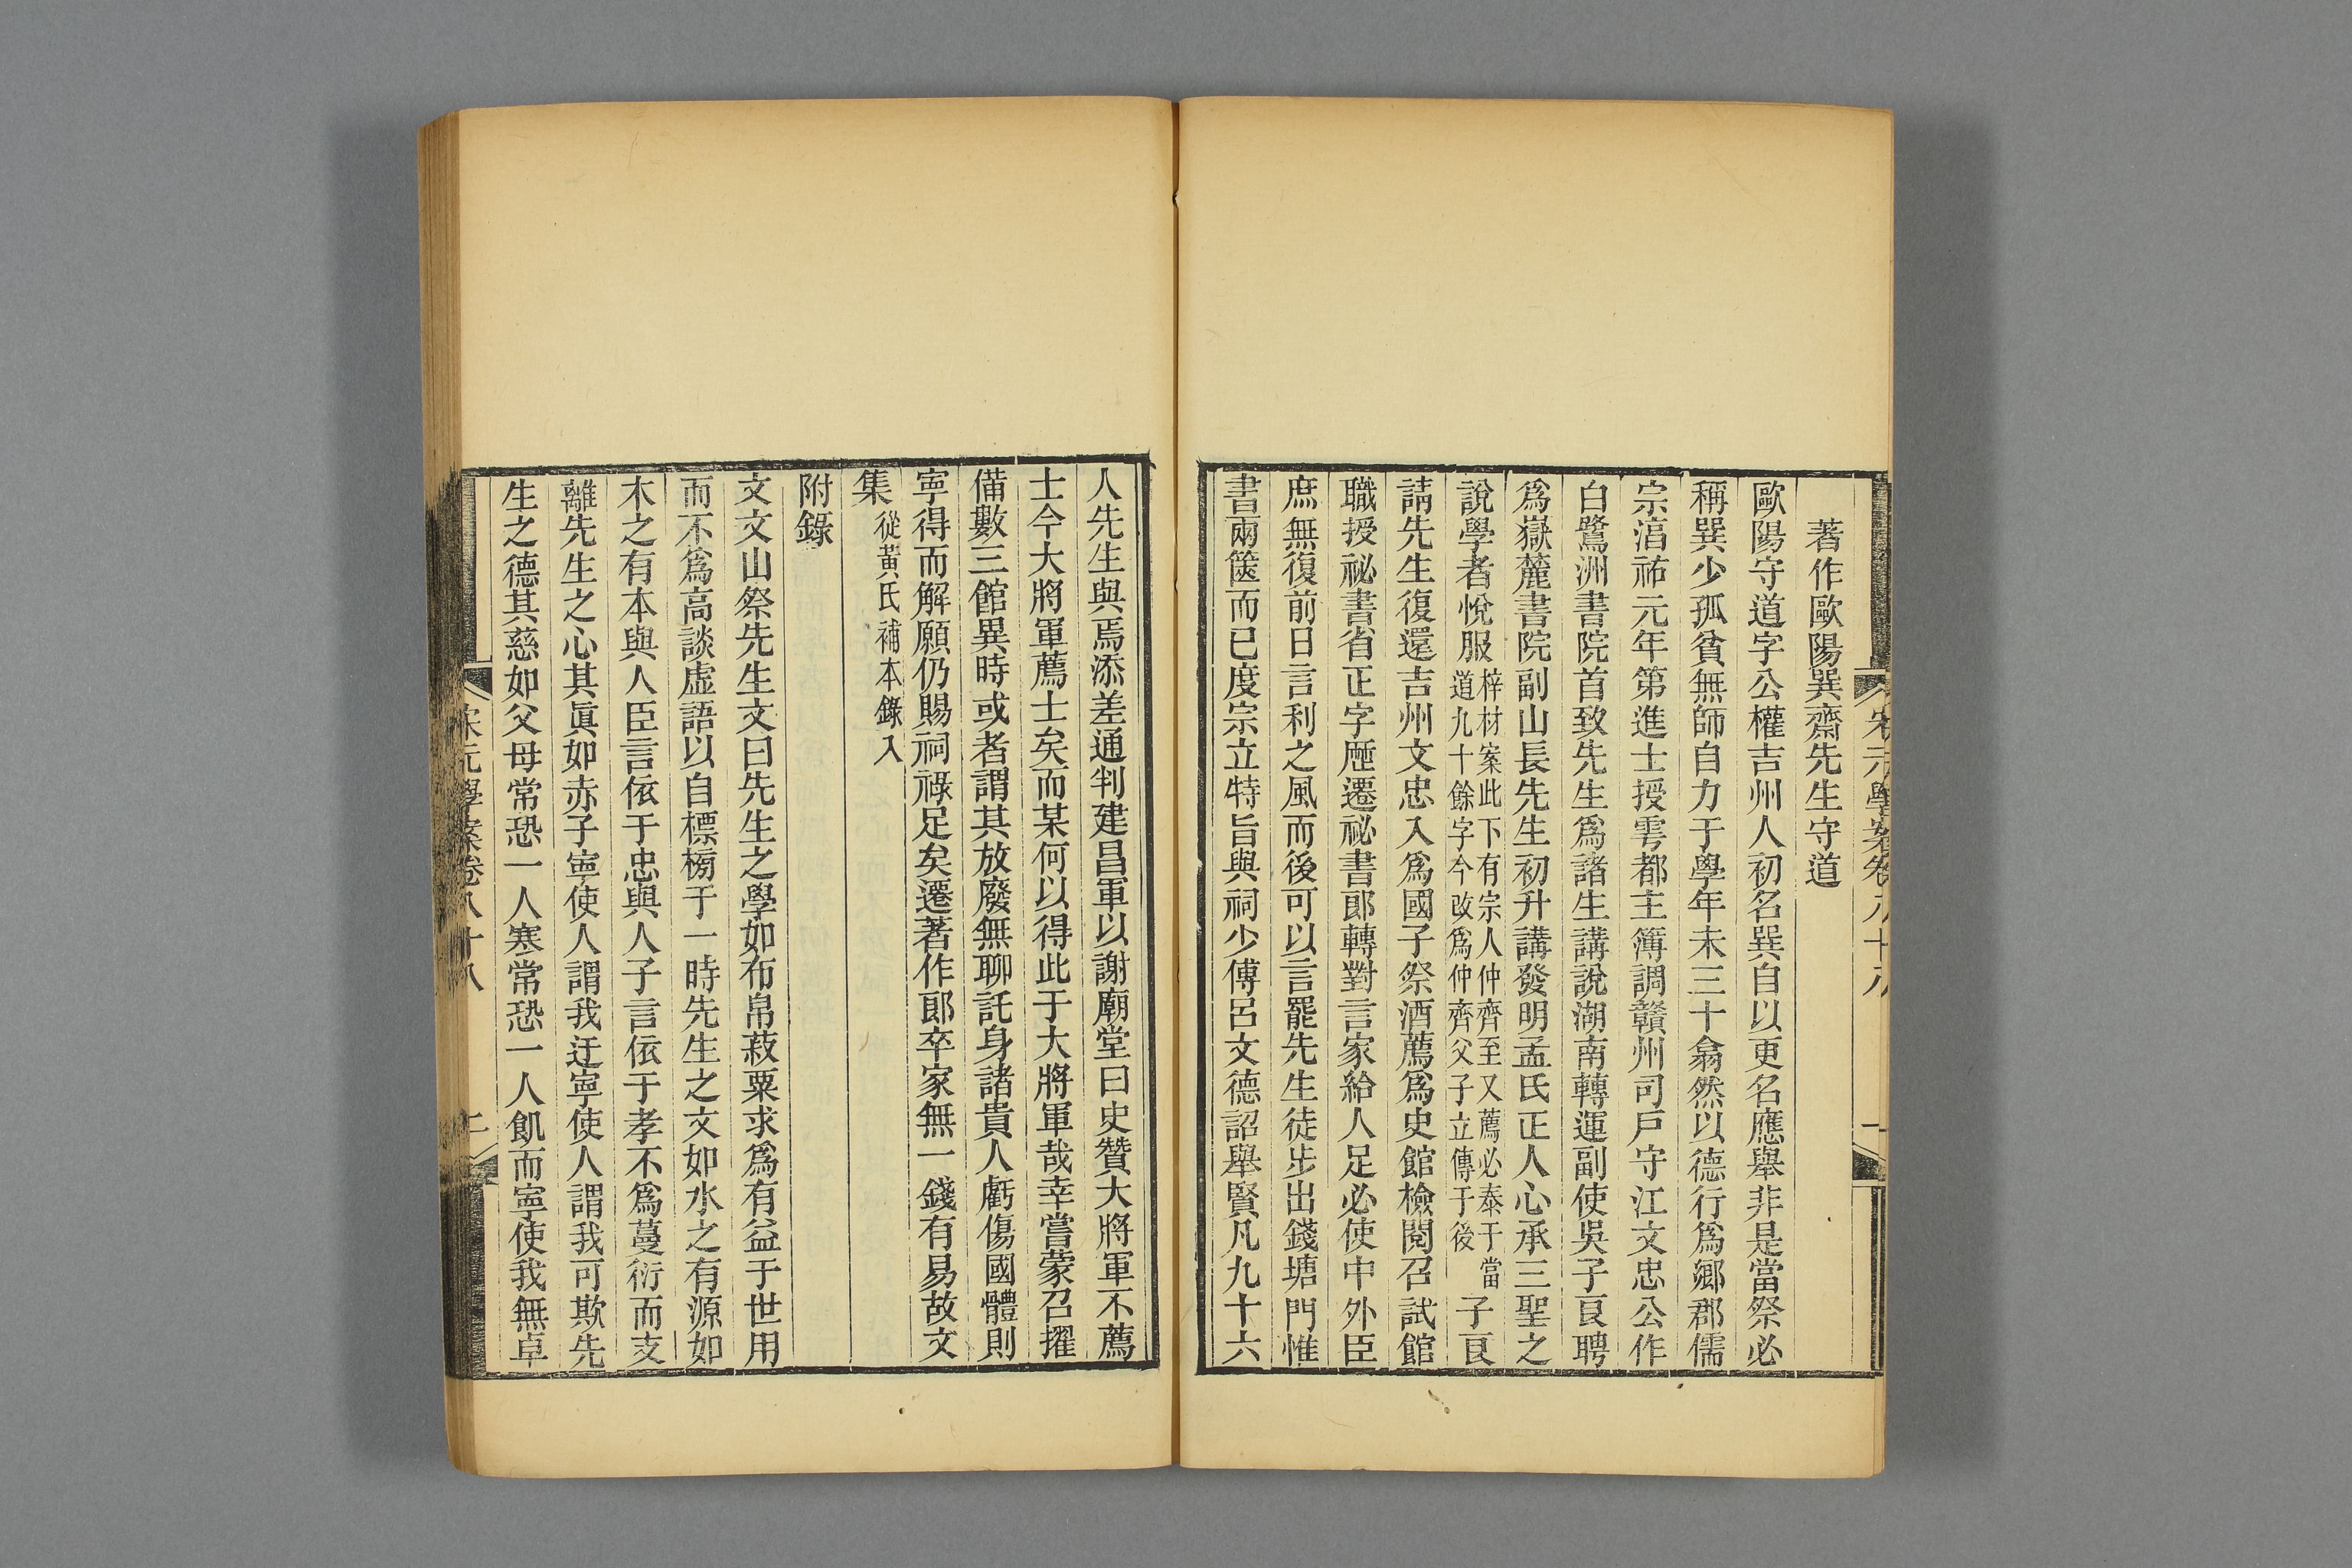 著作歐陽巽齋先生守道
歐陽守道字公權吉州人初名巽自以更名應舉非是當祭必
稱巽少孤貧無師自力于學年未三十翕然以德行爲鄉郡儒
宗淳祐元年第進士授雩都主簿調贛州司戶守江文忠公作
白鷺洲書院首致先生爲諸生講說湖南轉運副使吳子良聘
爲嶽麓書院副山長先生初升講發明孟氏正人心承三聖之
說學者悅服梓材案此下有宗人仲齊至又薦必泰于當道九十餘字今改爲仲齊父子立傳于後子良
請先生復還吉州文忠入爲國子祭酒薦爲史館檢閱召試館
職授祕書省正字歷遷祕書郎轉對言家給人足必使中外臣
庶無復前日言利之風而後可以言罷先生徒步出錢塘門惟
書兩篋而已度宗立特旨與祠少傅呂文德詔舉賢凡九十六
宋元學案卷八十八
人先生與焉添差通判建昌軍以謝廟堂曰史贊大將軍不薦
士今大將軍薦士矣而某何以得此于大將軍哉幸嘗蒙召擢
備數三館異時或者謂其放廢無聊託身諸貴人虧傷國體則
寧得而解願仍賜祠祿足矣遷著作郎卒家無一錢有易故文
集從黃氏補本錄入
附錄
文文山祭先生文曰先生之學如布帛菽粟求爲有益于世用
而不爲高談虛語以自標榜于一時先生之文如水之有源如
木之有本與人臣言依于忠與人子言依于孝不爲蔓衍而支
離先生之心其眞如赤子寧使人謂我迂寧使人謂我可欺先
生之德其慈如父母常恐一人寒常恐一人飢而寧使我無卓
宋元學案卷八十八